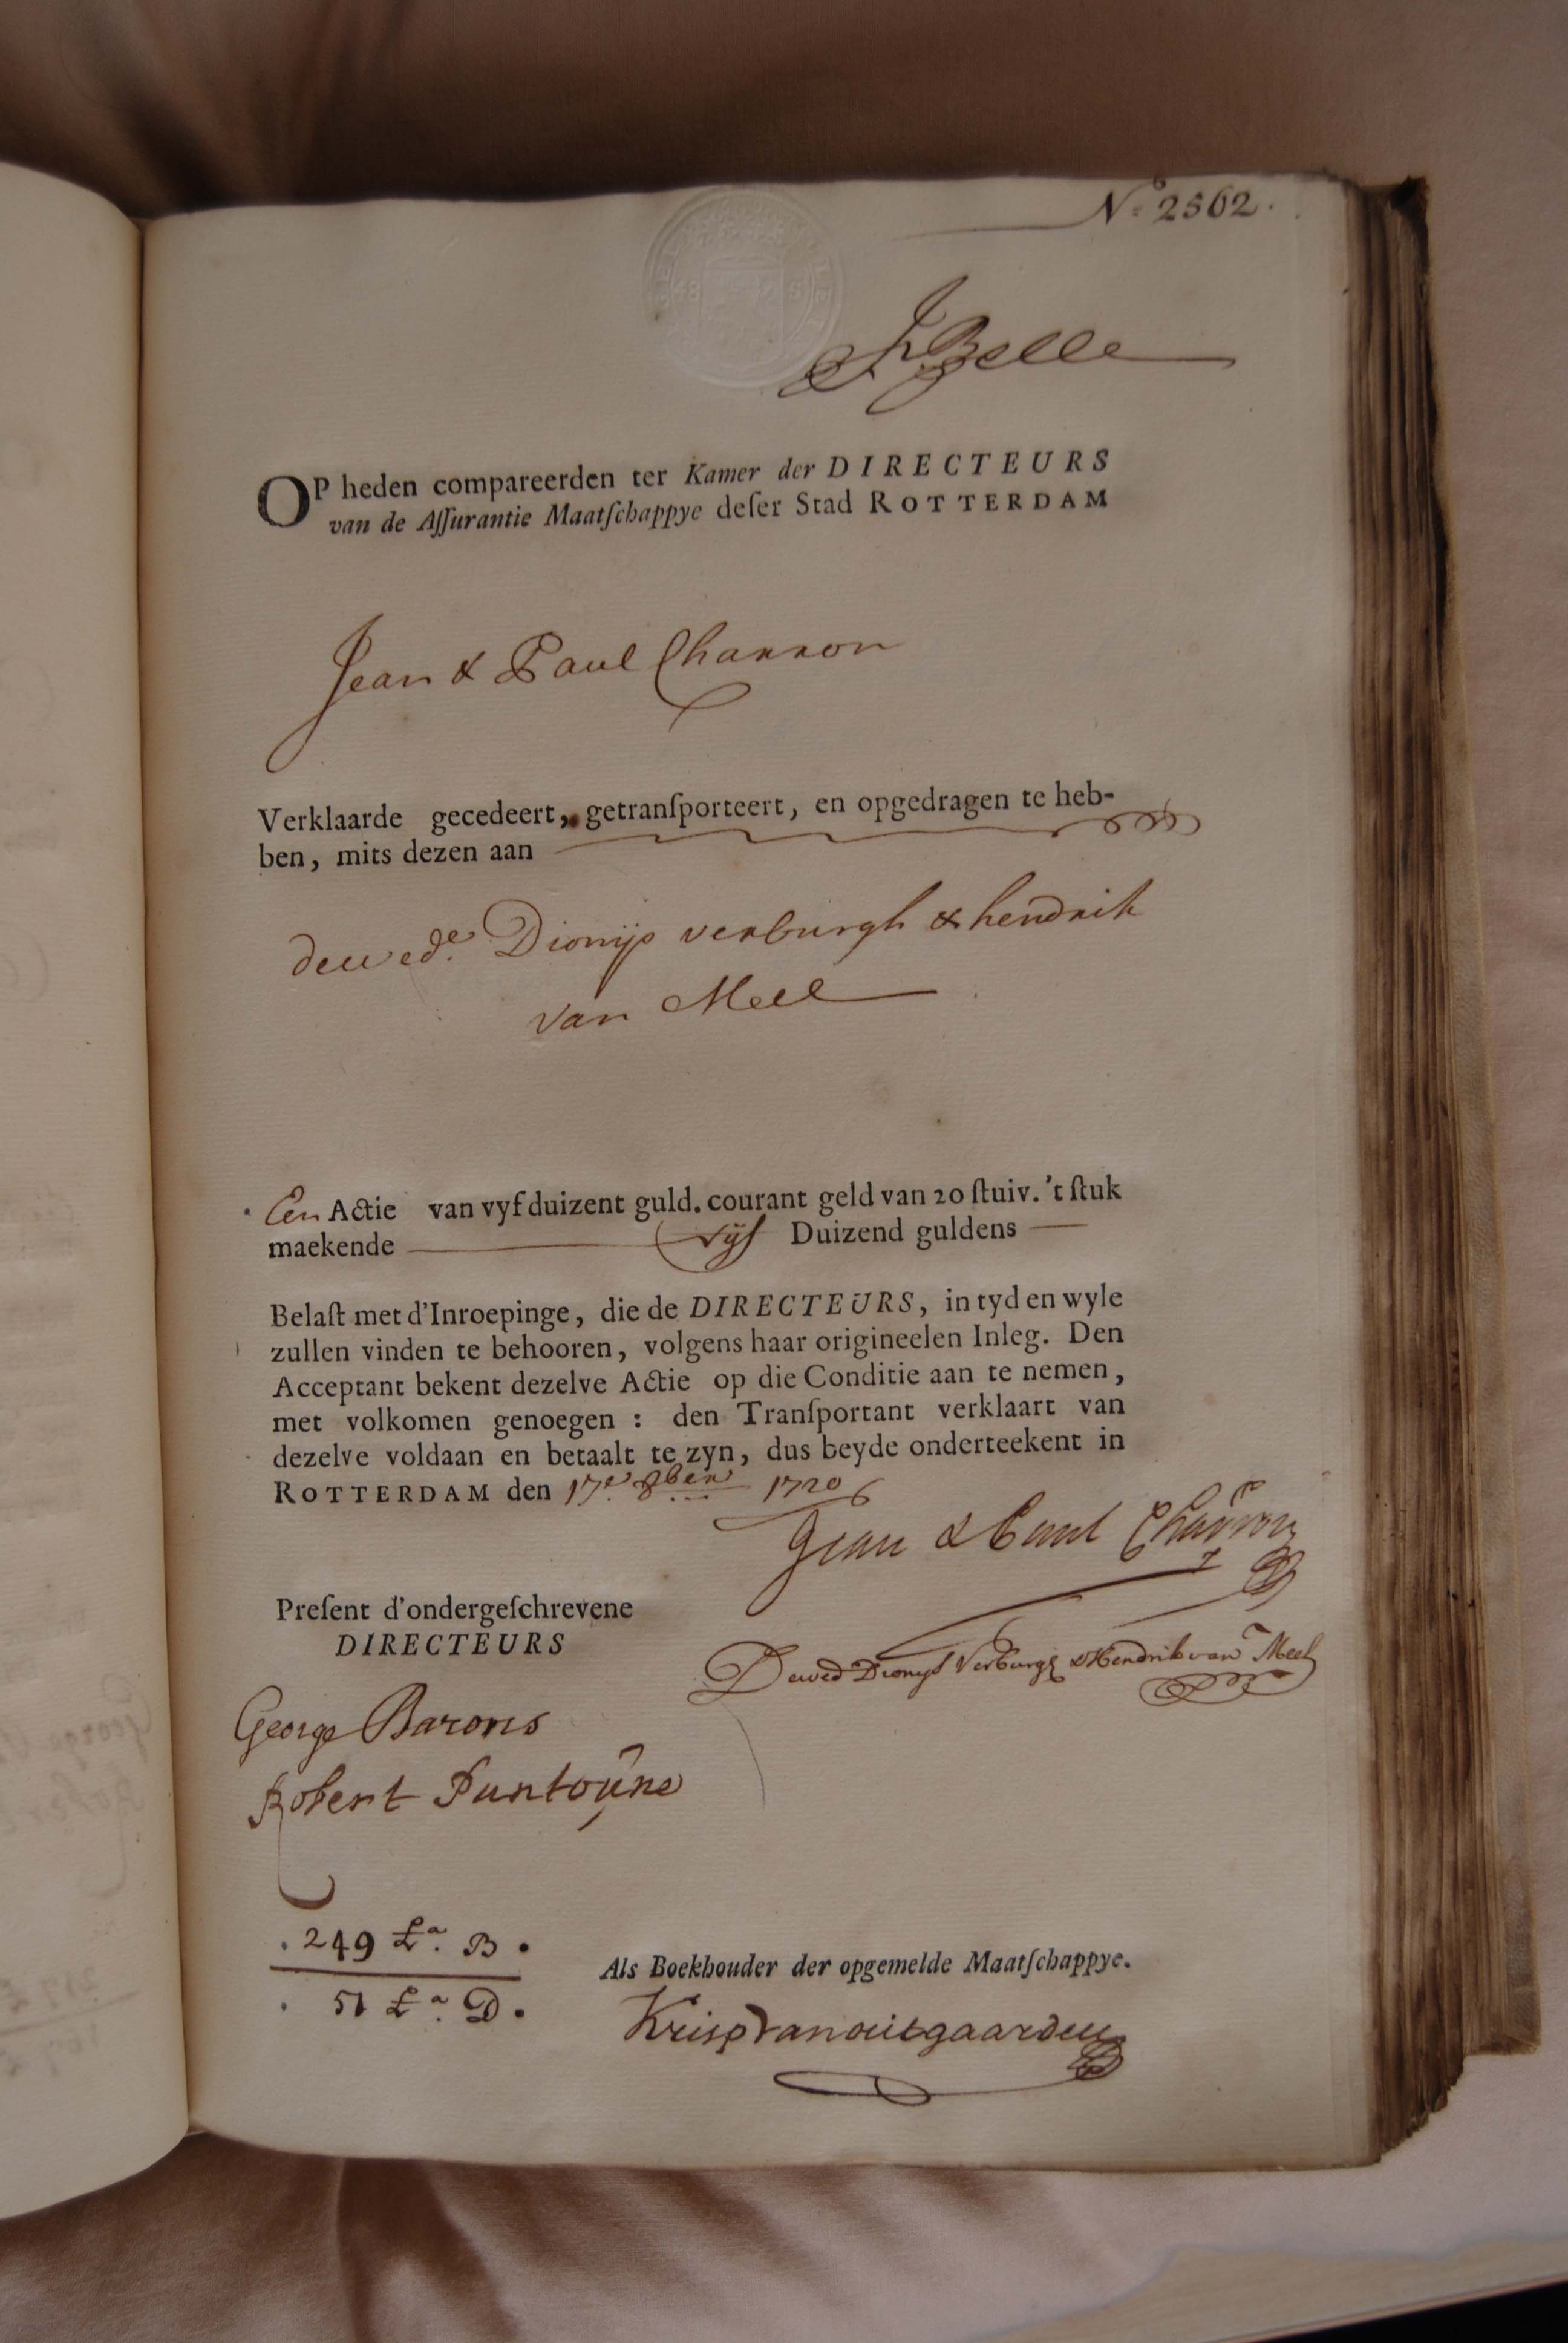 No 2562.
JBelle
OP heden compareerden ter Kamer der DIRECTEURS
van de Assurantie Maatschappye deser Stad ROTTERDAM
Jean & Paul Charron
Verklaarde gecedeert, getransporteert, en opgedragen te heb-
ben, mits dezen aan
de wede. Dionijs verburgh & hendrik
van Meel
Een Actie van vyf duizent guld. courant geld van 20 stuiv. 't stuk
maekende vijf Duizend guldens
Belast met d'Inroepinge, die de DIRECTEURS, in tyd en wyle
zullen vinden te behooren, volgens haar origineelen Inleg. Den
Acceptant bekent dezelve Actie op die Conditie aan te nemen,
met volkomen genoegen : den Transportant verklaart van
dezelve voldaan en betaalt te zyn, dus beyde onderteekent in
ROTTERDAM den 17e. 8ber 1720
Jean & Paul Charron
Present d'ondergeschrevene
DIRECTEURS
De wed Dionys Verburgh & Hendrik van Meel
George Barons
Robert Puntoijne
249 La. B.
51 La. D.
Als Boekhouder der opgemelde Maatschappye.
Krisp Van outgaarden